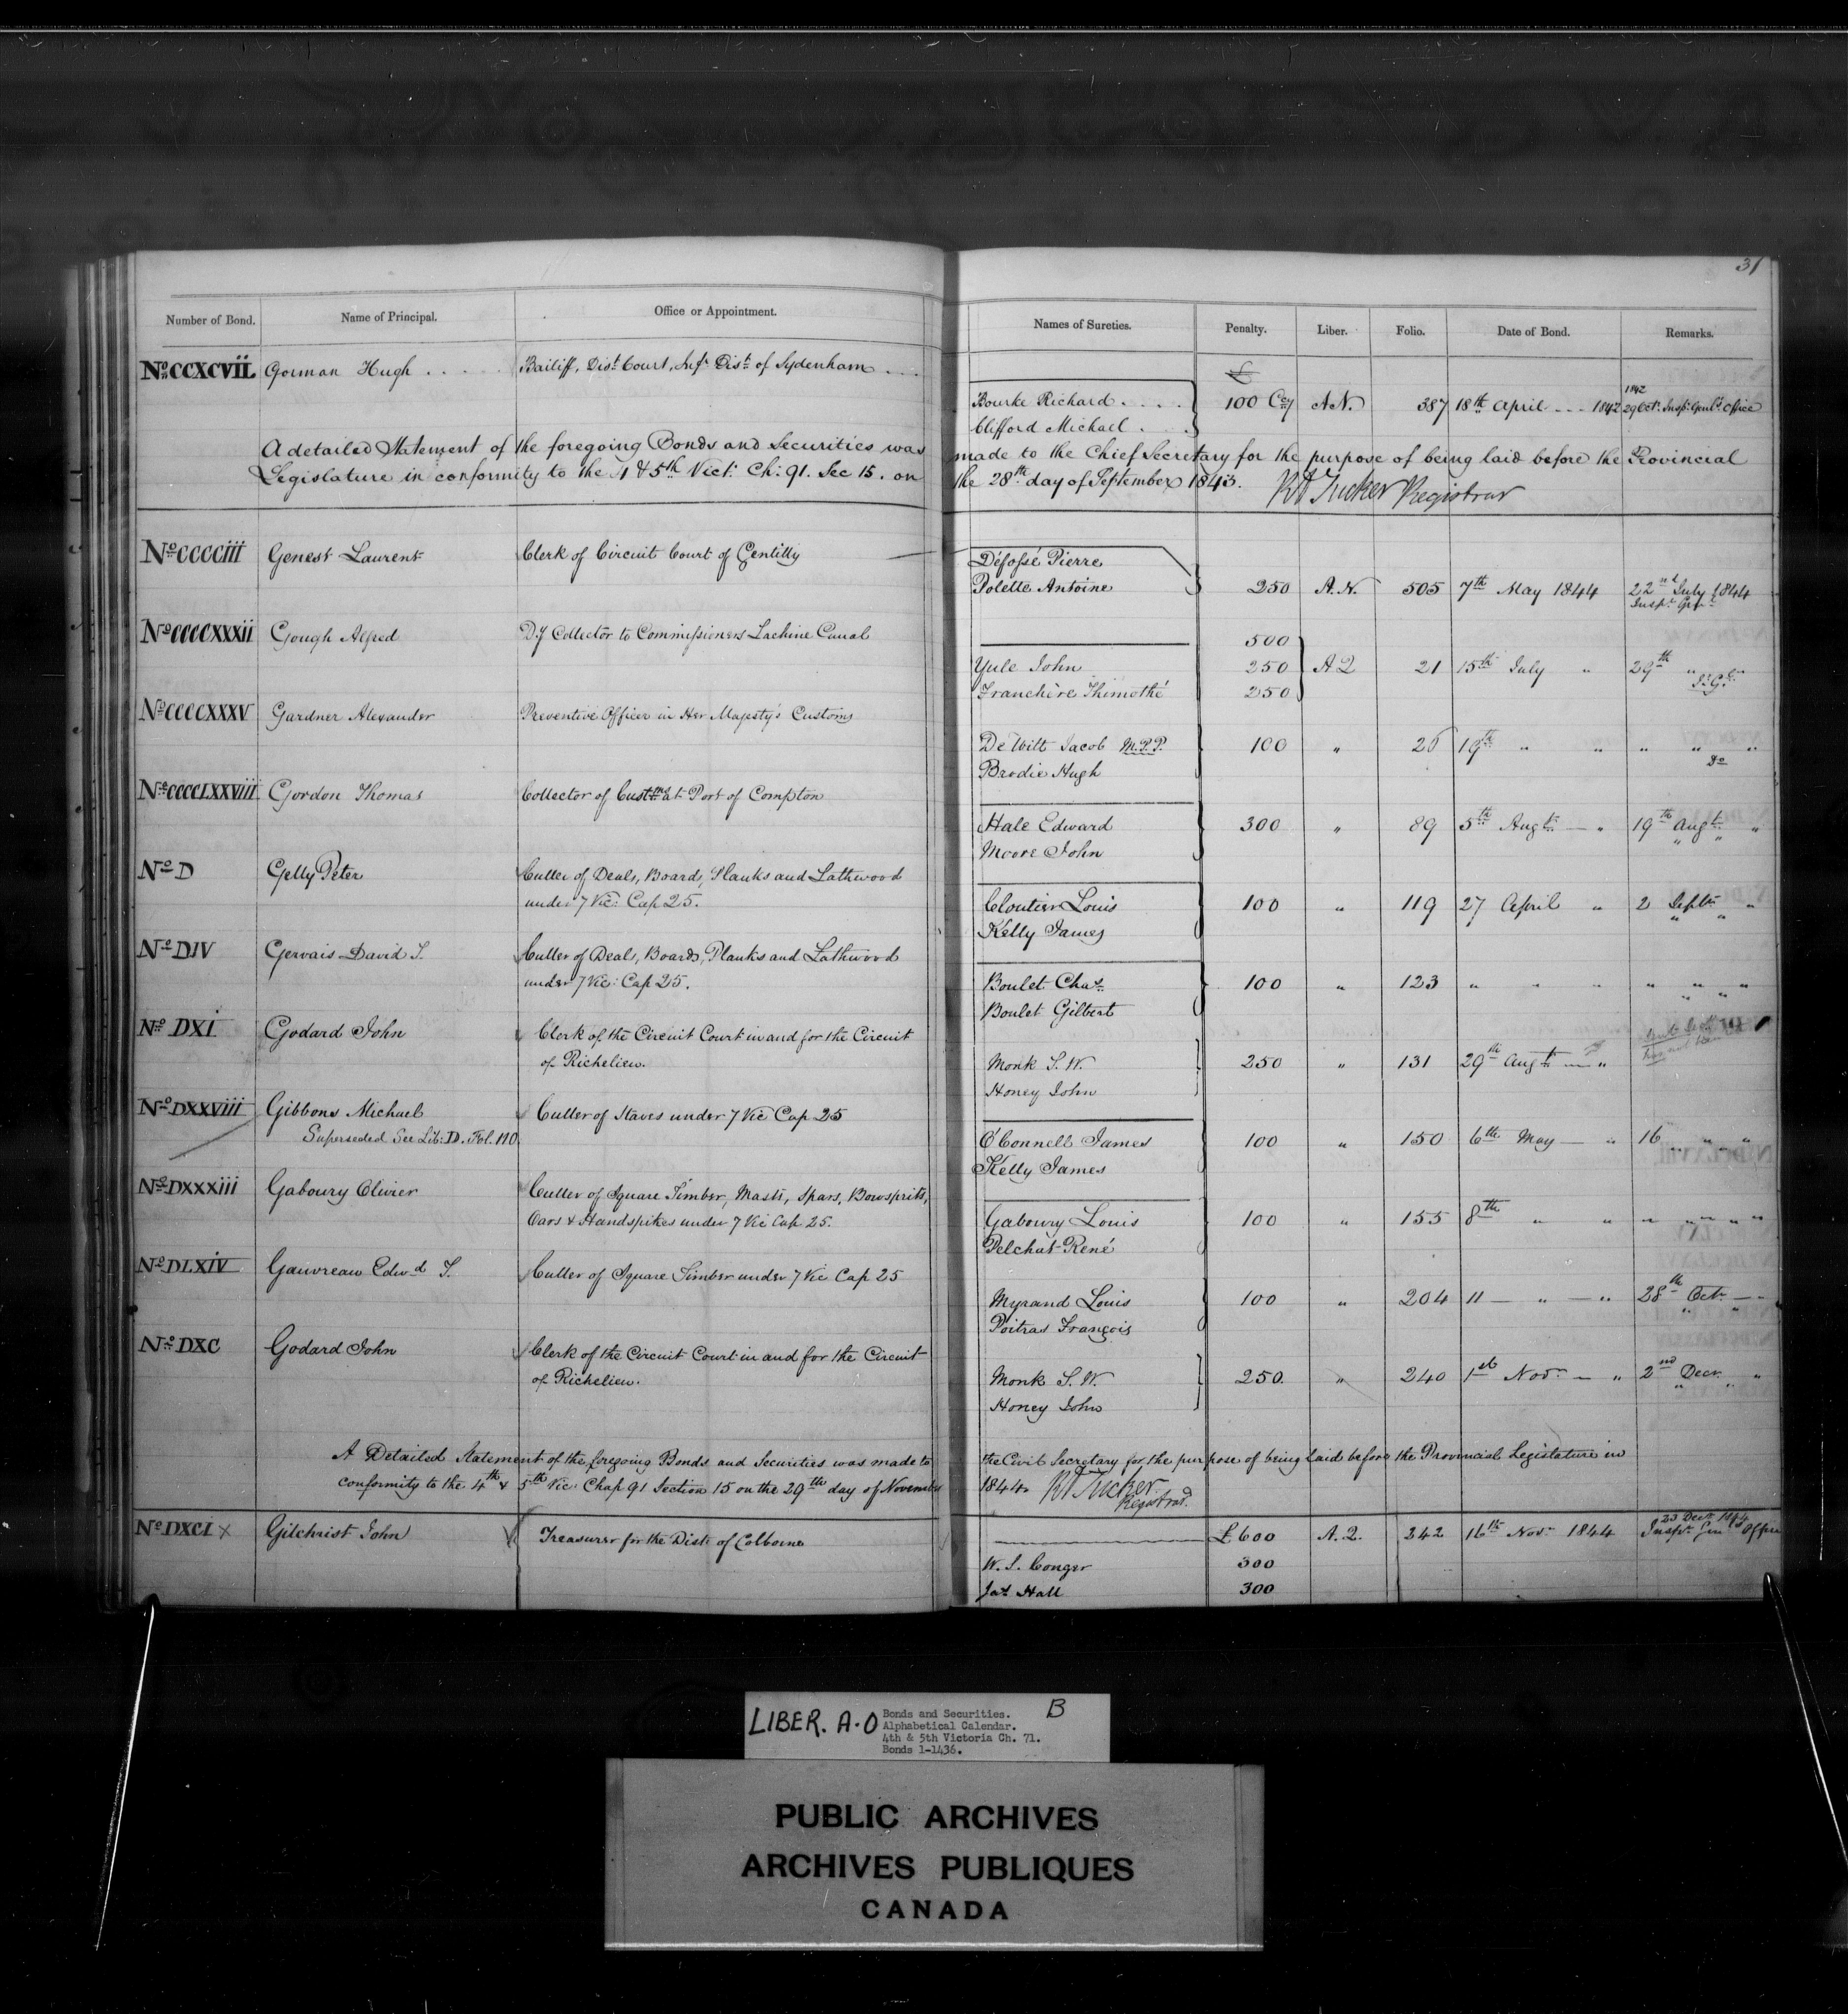 31
Number of Bond. Name of Principal. Office or Appointment. Names of Sureties. Penalty. Liber. Folio. Date of Bond. Remarks.
No. CCXCVII Gorman Hugh . . . . Bailiff, Dist. Court, Inf. Dist. of Sydenham . . . .
£
Bourke Richard . . . . 100 Ccy A N. 387 18th April . . . 1842 1842 29 Oct. Insp. Genl's. Office
Clifford Michael .
A detailed Statement of the foregoing Bonds and Securities was made to the Chief Secretary for the purpose of being laid before the Provincial
Legislature in conformity to the 4 & 5th Vict: Ch: 91. Sec 15. on the 28th day of September 1843. RA Tucker Registrar
No. CCCCIII Genest Laurent Clerk of Circuit Court of Gentilly
Défossé Pierre
Polette Antoine 250 A.N. 505 7th May 1844 22nd July 1844
Insp. Genl.
No. CCCCXXXII Gough Alfred Dy Collector to Commissioners Lachine Canal
500
Yule John 250 A Q 21 15th July " 29th " "
Franchère Thimothé 250
No. CCCCXXXV Gardner Alexander Preventive Officer in Her Majesty's Customs
De Witt Jacob M.P.P. 100 " 26 19th " " " " "
Brodie Hugh Do
No. CCCCLXXVIII Gordon Thomas Collector of Custms at Port of Compton
Hale Edward 300 " 89 5th Augt. — " 19th Augt. "
Moore John " "
No. D Gelly Peter Culler of Deals, Boards, Planks and Lathwood
under 7 Vic: Cap 25.
Cloutier Louis 100 " 119 27 April " 2 Septr. "
Kelly James " "
No. DIV Gervais David T. Culler of Deals, Boards, Planks and Lathwood
under 7 Vic: Cap 25.
Boulet Chas. 100 " 123 " " " " " "
Boulet Gilbert " "
No. DXI Godard John Clerk of the Circuit Court in and for the Circuit
of Richelieu.
Monk S. W. 250 " 131 29th Augt. — "
Honey John
No. DXXVIII Gibbons Michael Culler of Staves under 7 Vic Cap 25
Superseded See Lib: D. Fol. 110
O'Connell James 100 " 150 6th May — " 16 " "
Kelly James
No. DXXXIII Gaboury Olivier Culler of Square Timber, Masts, Spars, Bowsprits,
Oars & Handspikes under 7 Vic Cap 25.
Gaboury Louis 100 " 155 8th " " " " " "
Pelchat René
No. DLXIV Gauvreau Edwd T. Culler of Square Timber under 7 Vic Cap 25
Myrand Louis 100 " 204 11 — " — " 28th Oct. — "
Poitras François " "
No. DXC Godard John Clerk of the Circuit Court in and for the Circuit
of Richelieu.
Monk S. W. 250 " 240 1st Novr. — " 2nd Decr. "
Honey John " "
A Detailed Statement of the foregoing Bonds and Securities was made to the Civil Secretary for the purpose of being laid before the Provincial Legislature in
conformity to the 4th & 5th Vic: Chap 91 Section 15 on the 29th day of November 1844. RA Tucker
Registrar.
No. DXCI x Gilchrist John Treasurer for the Dist. of Colborne £600 A.Q. 242 16th Novr. 1844 23 Decr. 1844
Insp. Genl's Office
W. S. Conger 300
Jas. Hall 300
LIBER. A-O Bonds and Securities. B
Alphabetical Calendar.
4th & 5th Victoria Ch. 71.
Bonds 1-1436.
PUBLIC ARCHIVES
ARCHIVES PUBLIQUES
CANADA